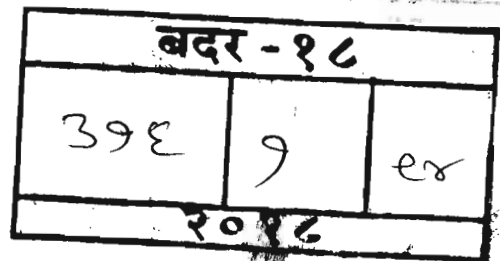 बदर - १८
३१६ १ ९४
२०१८